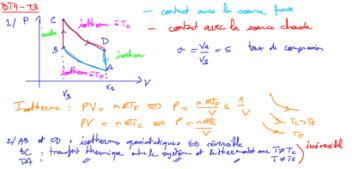 TD T4 - T3
1/ P
C
isotherme à Tc
B
D
A
isotherme à TF
V
VB
VA
— contact avec la source froide
— contact avec la source chaude
a = VA/VB = 5 taux de compression
Isotherme : PV = nRTF ⇔ P = nRTF/V ∝ 1/V
PV = nRTc ⇔ P = nRTc/V
Tc > TF
TF
2/ AB et CD : isothermes quasistatiques ⇔ réversible
BC : transfert thermique entre le système et le thermostat avec T ≠ Tc
DA : " " " " T ≠ TF
irréversible